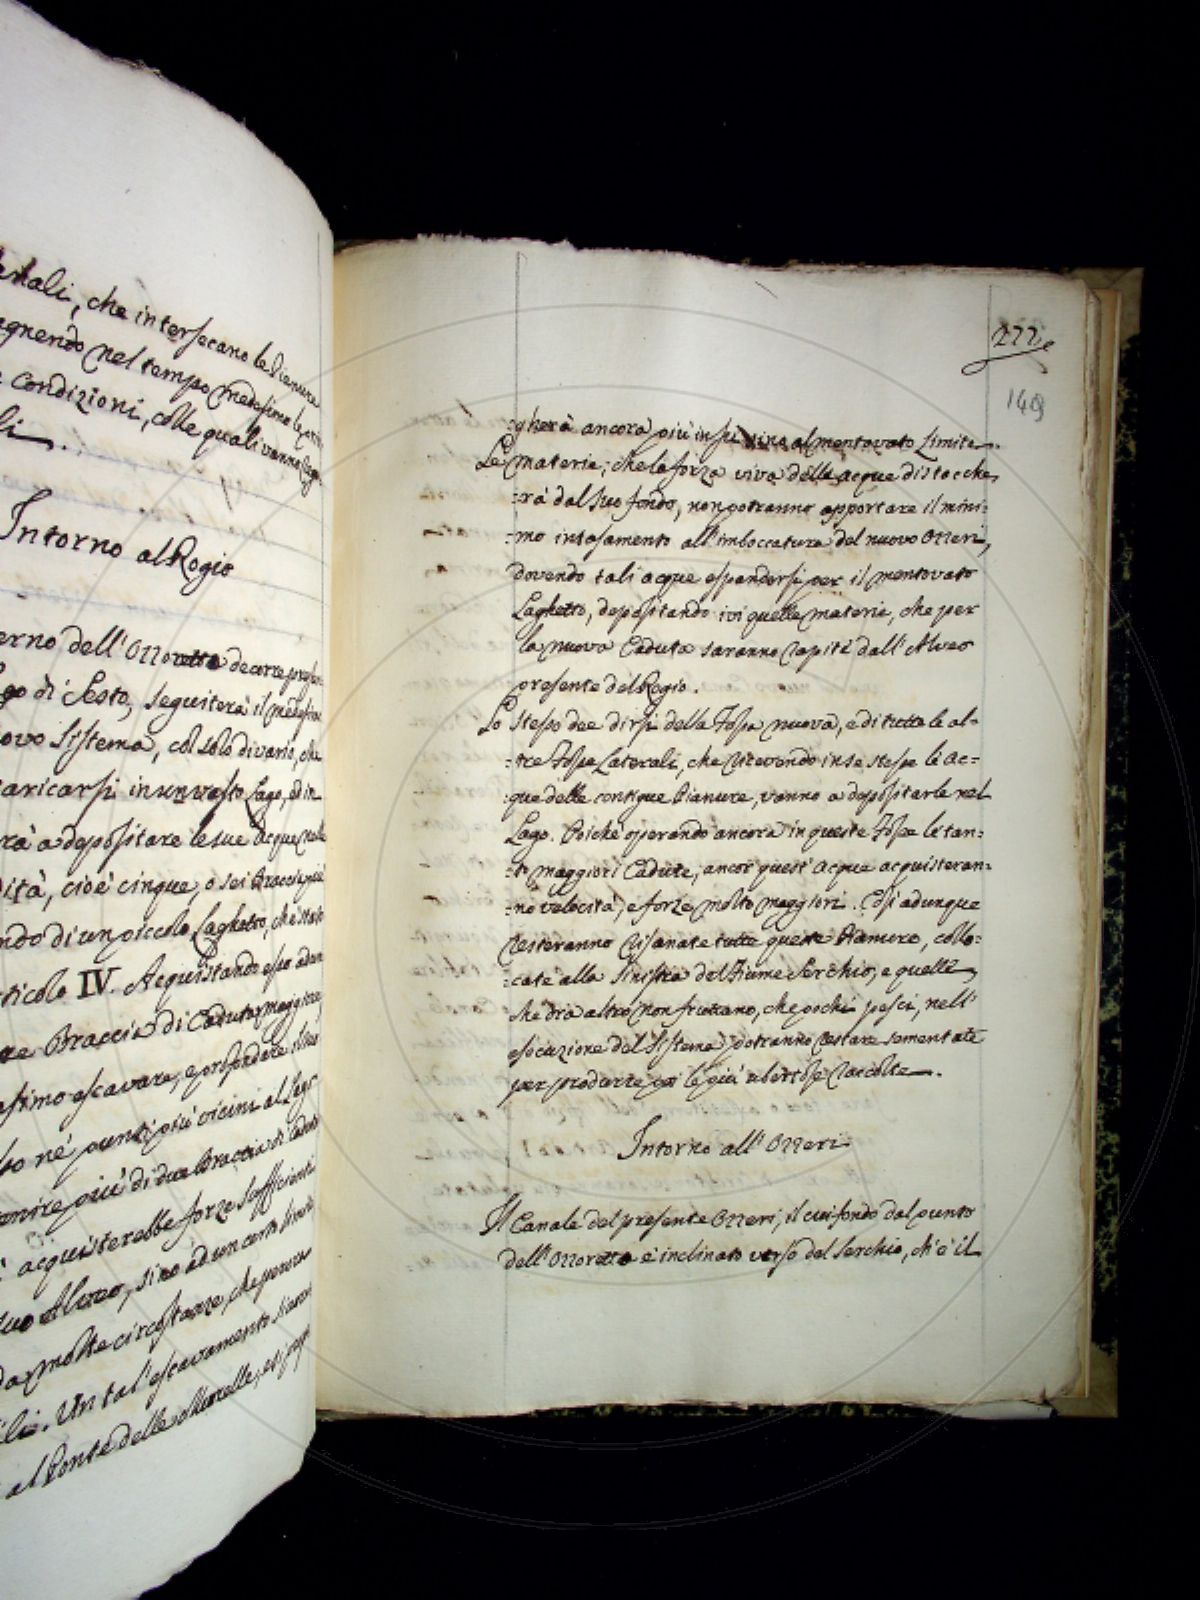 che intersecano le Pianure
nel tempo medesimo le
Condizioni, colle quali vanno
Intorno al Rogio
erno dell'Ozzoretto decorre
di Sesto, seguiterà il medesimo
ovo Sistema, col solo divario, che
caricarsi in un vasto Lago, ed in
rà a depositare le sue Acque
dità, cioè cinque, o sei Braccia più
ndo di un piccolo Laghetto, che
ticolo IV. Acquistando esso
Braccia di Caduta maggiore,
escavare, e profondare il suo
né punti più vicini al Lago
venire più di due Braccia di Caduta
acquisterebbe forze sufficienti
suo Alveo, sino ad un certo limite
da molte circostanze, che
Un tal'escavamento
al Ponte delle
277
149
:gherà ancora più in sù sino al mentovato Limite.
Le materie, che la forza viva delle acque distacche:
:rà dal suo fondo, non potranno apportare il mini:
:mo intasamento all'imboccatura del nuovo Ozzeri,
dovendo tali acque espandersi per il mentovato
Laghetto, depositando ivi quelle materie, che per
la nuova Caduta saranno rapite dall'Alveo
presente del Rogio.
Lo stesso dee dirsi della Fossa nuova, e di tutte le al=
:tre Fosse Laterali, che ricevendo in se stesse le ac=
:que delle contigue Pianure, vanno a depositarle nel
Lago. Poiché operando ancora in queste Fosse le tan:
:to maggiori Cadute, ancor quest'acque acquisteran:
:no velocità, e forze molto maggiori. Così adunque
resteranno risanate tutte queste Pianure, collo:
:cate alla Sinistra del Fiume Serchio, e quelle,
che ora altro non fruttano, che pochi pesci, nell'
esecuzione del Sistema potranno restare sementate
per produrre poi le più ubertose raccolte.
Intorno all'Ozzeri
Il Canale del presente Ozzeri, il cui fondo dal punto
dell'Ozzoretto è inclinato verso del Serchio, ch'è il